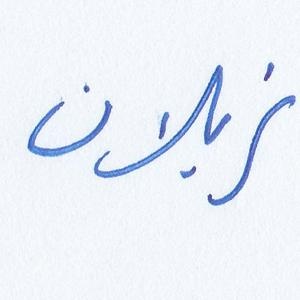 زبلان